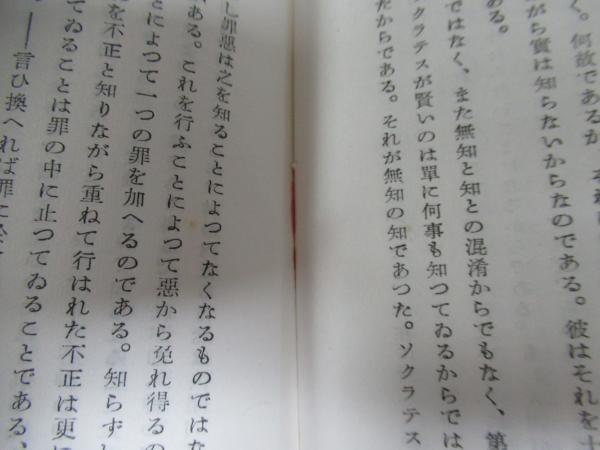 く。何故であるか。
がら實は知らないからなのである。彼はそれを
ある。
ではなく、また無知と知との混淆からでもなく、第
ソクラテスが賢いのは單に何事も知つてゐるからでは
だからである。それが無知の知であつた。ソクラテス
し罪惡は之を知ることによつてなくなるものではな
ある。これを行ふことによつて惡から免れ得るの
とによつて一つの罪を加へるのである。知らずし
を不正と知りながら重ねて行はれた不正は更に
てゐることは罪の中に止つてゐることである、
——言ひ換へれば罪に